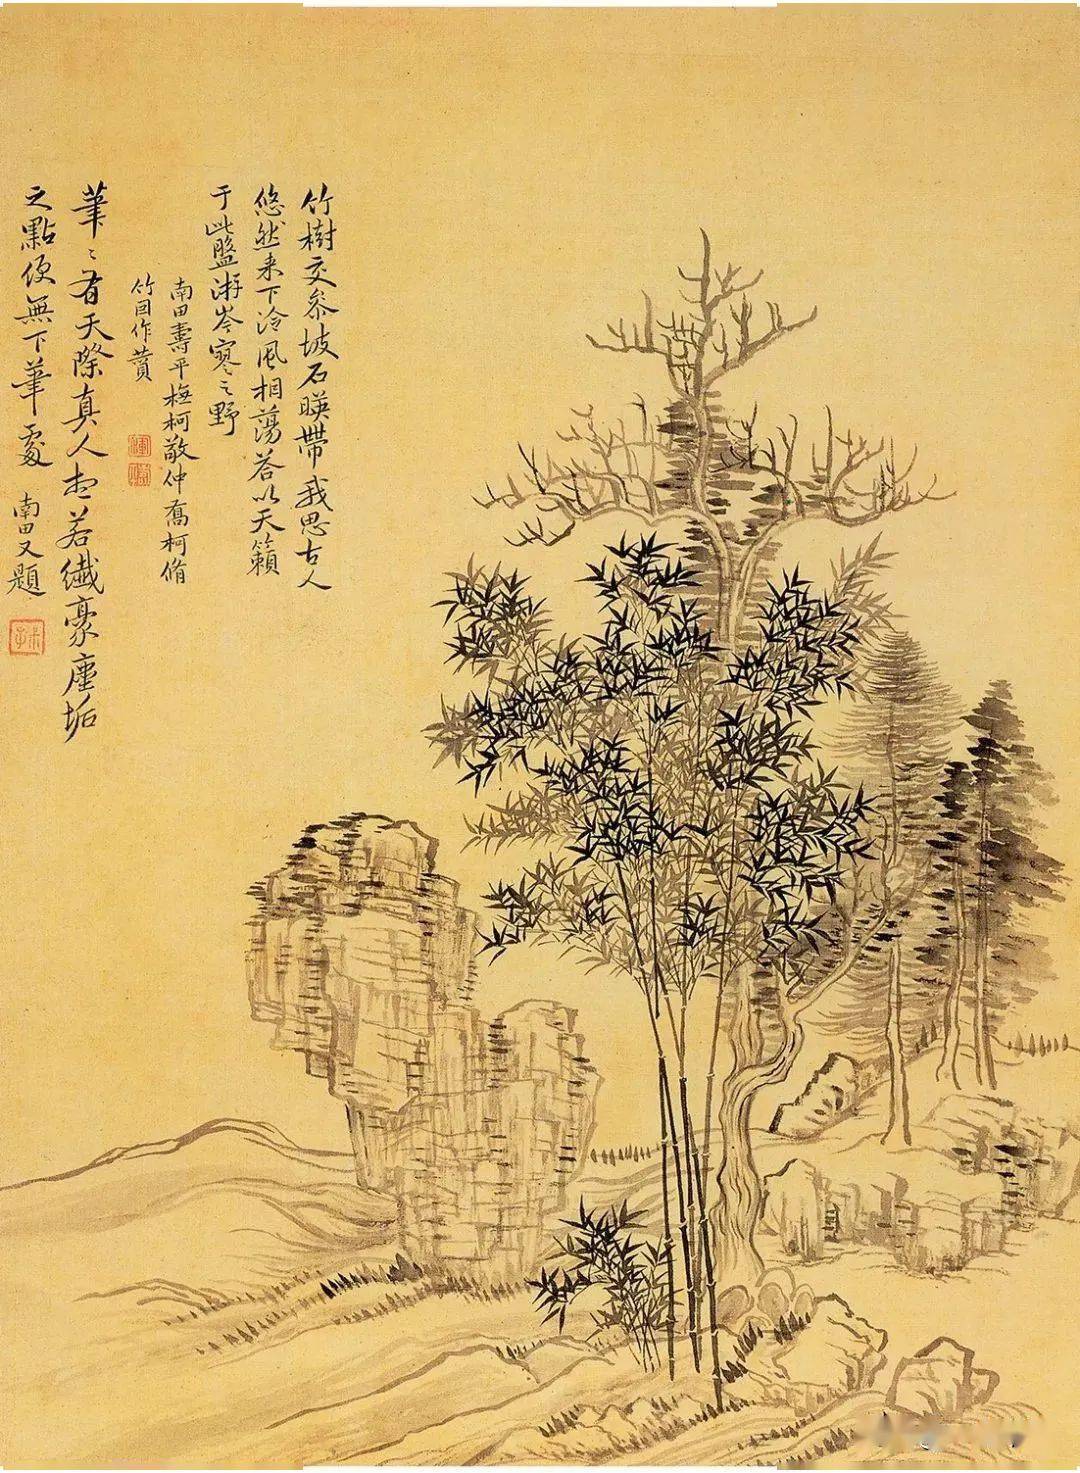 竹樹交参坡石暎帶我思古人
悠然来下泠風相蕩荅以天籟
于此盤游岑寥之野
南田壽平橅柯敬仲喬柯脩
竹因作贊
筆〻有天際真人想若纖豪塵垢
之點便無下筆處
南田又題